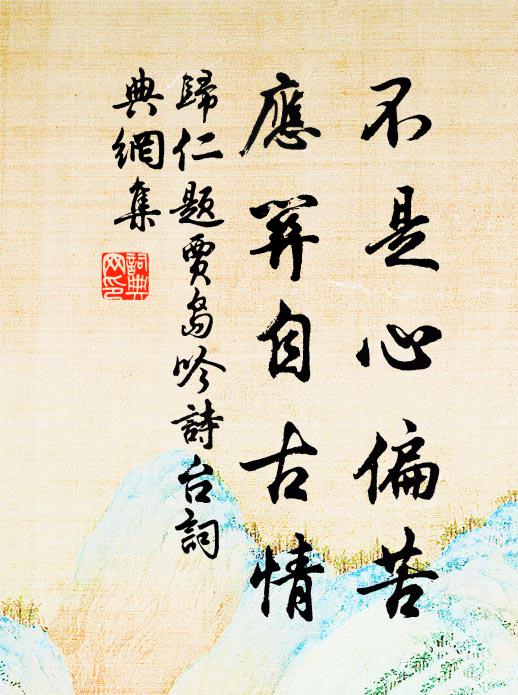 不是心偏苦
應關自古情
歸仁題賈島吟詩台詞
典網集
詞典
网印